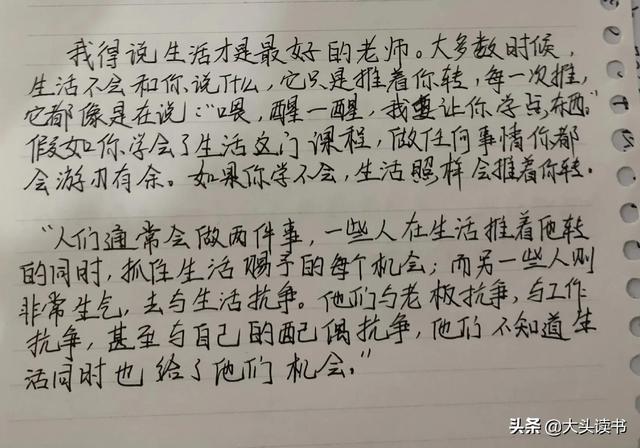 我得说生活才是最好的老师。大多数时候，
生活不会和你说什么，它只是推着你转，每一次推，
它都像是在说："喂，醒一醒，我要让你学点东西。"
假如你学会了生活这门课程，做任何事情你都
会游刃有余。如果你学不会，生活照样会推着你转。
"人们通常会做两件事，一些人在生活推着他转
的同时，抓住生活赐予的每个机会；而另一些人则
非常生气，去与生活抗争。他们与老板抗争，与工作
抗争，甚至与自己的配偶抗争，他们不知道生
活同时也给了他们机会。"
头条 @大头读书